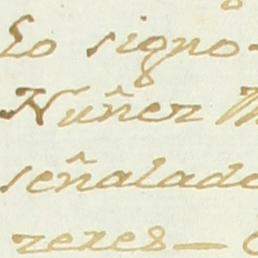 Lo signo-
Nuñez
señalade
zexes —